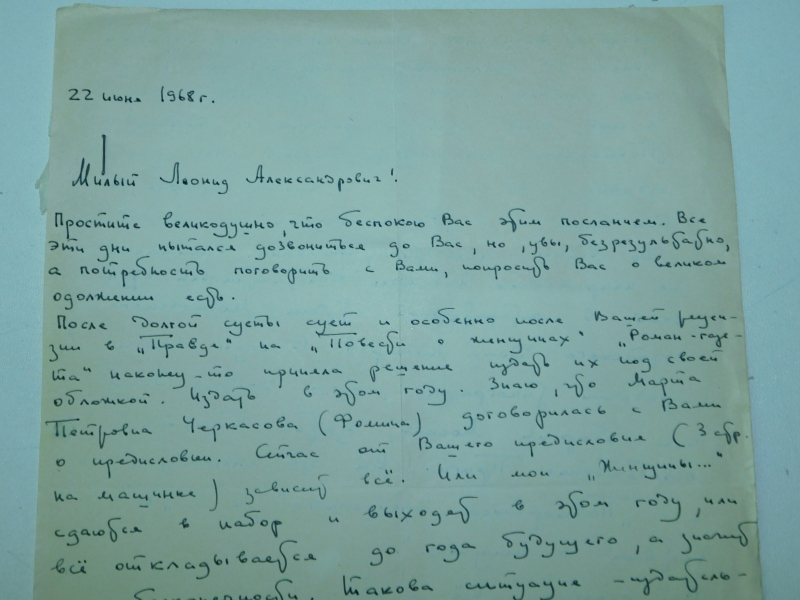 22 июня 1968 г.
Милый Леонид Александрович!
Простите великодушно, что беспокою Вас этим посланием. Все
эти дни пытался дозвониться до Вас, но, увы, безрезультатно,
а потребность поговорить с Вами, попросить Вас о великом
одолжении есть.
После долгой суеты сует и особенно после Вашей рецен-
зии в „Правде" на „Повести о женщинах" „Роман-газе-
та" наконец-то приняла решение издать их под своей
обложкой. Издать в этом году. Знаю, что Марта
Петровна Черкасова (Фомина) договорилась с Вами
о предисловии. Сейчас от Вашего предисловия (3 стр.
на машинке) зависит всё. Или мои „Женщины..."
сдаются в набор и выходят в этом году, или
всё откладывается до года будущего, а значит
Такова ситуация - издатель-